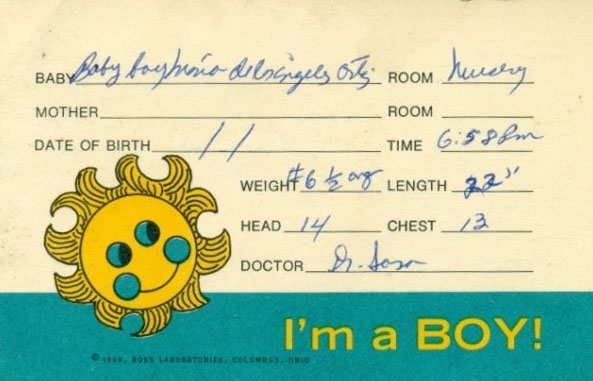 BABY Baby boy Maria de los Angeles Ortiz ROOM Nursery
MOTHER ROOM
DATE OF BIRTH / / TIME 6:58 pm
WEIGHT #6 ½ oz LENGTH 22"
HEAD 14 CHEST 13
DOCTOR Dr. Sosa
I'm a BOY!
© 1969, ROSS LABORATORIES, COLUMBUS, OHIO